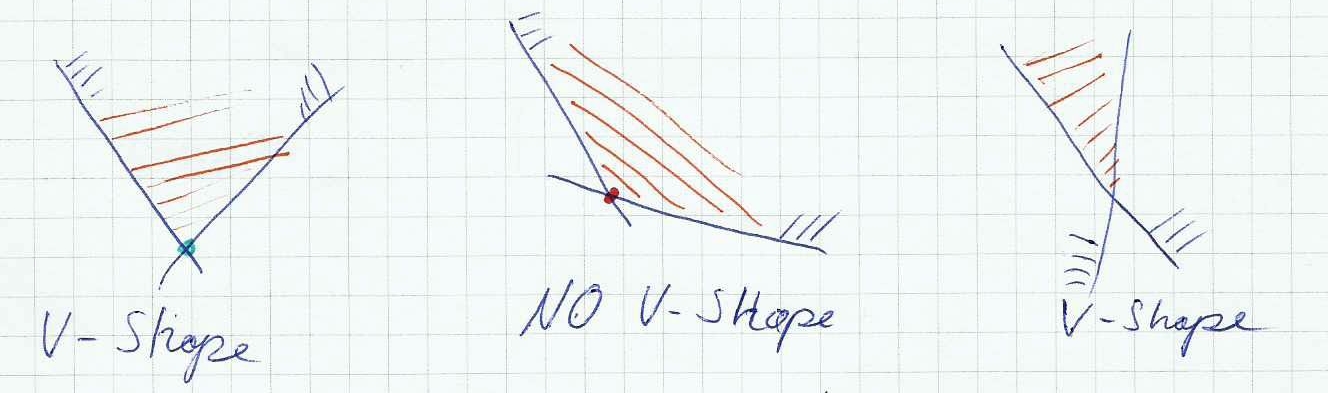 V - Shape
NO V - Shape
V - Shape